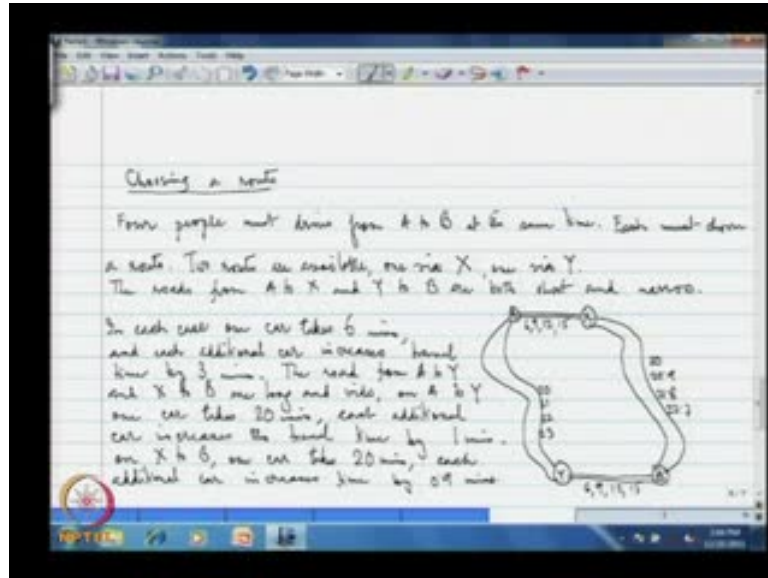 Choosing a route
Four people must drive from A to B at the same time. Each must choose
a route. Two routes are available, one via X, one via Y.
The roads from A to X and Y to B are both short and narrow.
In each case one car takes 6 mins,
and each additional car increases travel
time by 3 mins. The road from A to Y
and X to B are long and wide, on A to Y
one car takes 20 mins, each additional
car increases the travel time by 1 min.
on X to B, one car takes 20 min, each
additional car increases time by 0.9 mins
6, 9, 12, 15
20
20.9
21.8
22.7
20
21
22
23
Y
B
6, 9, 12, 15
NPTEL